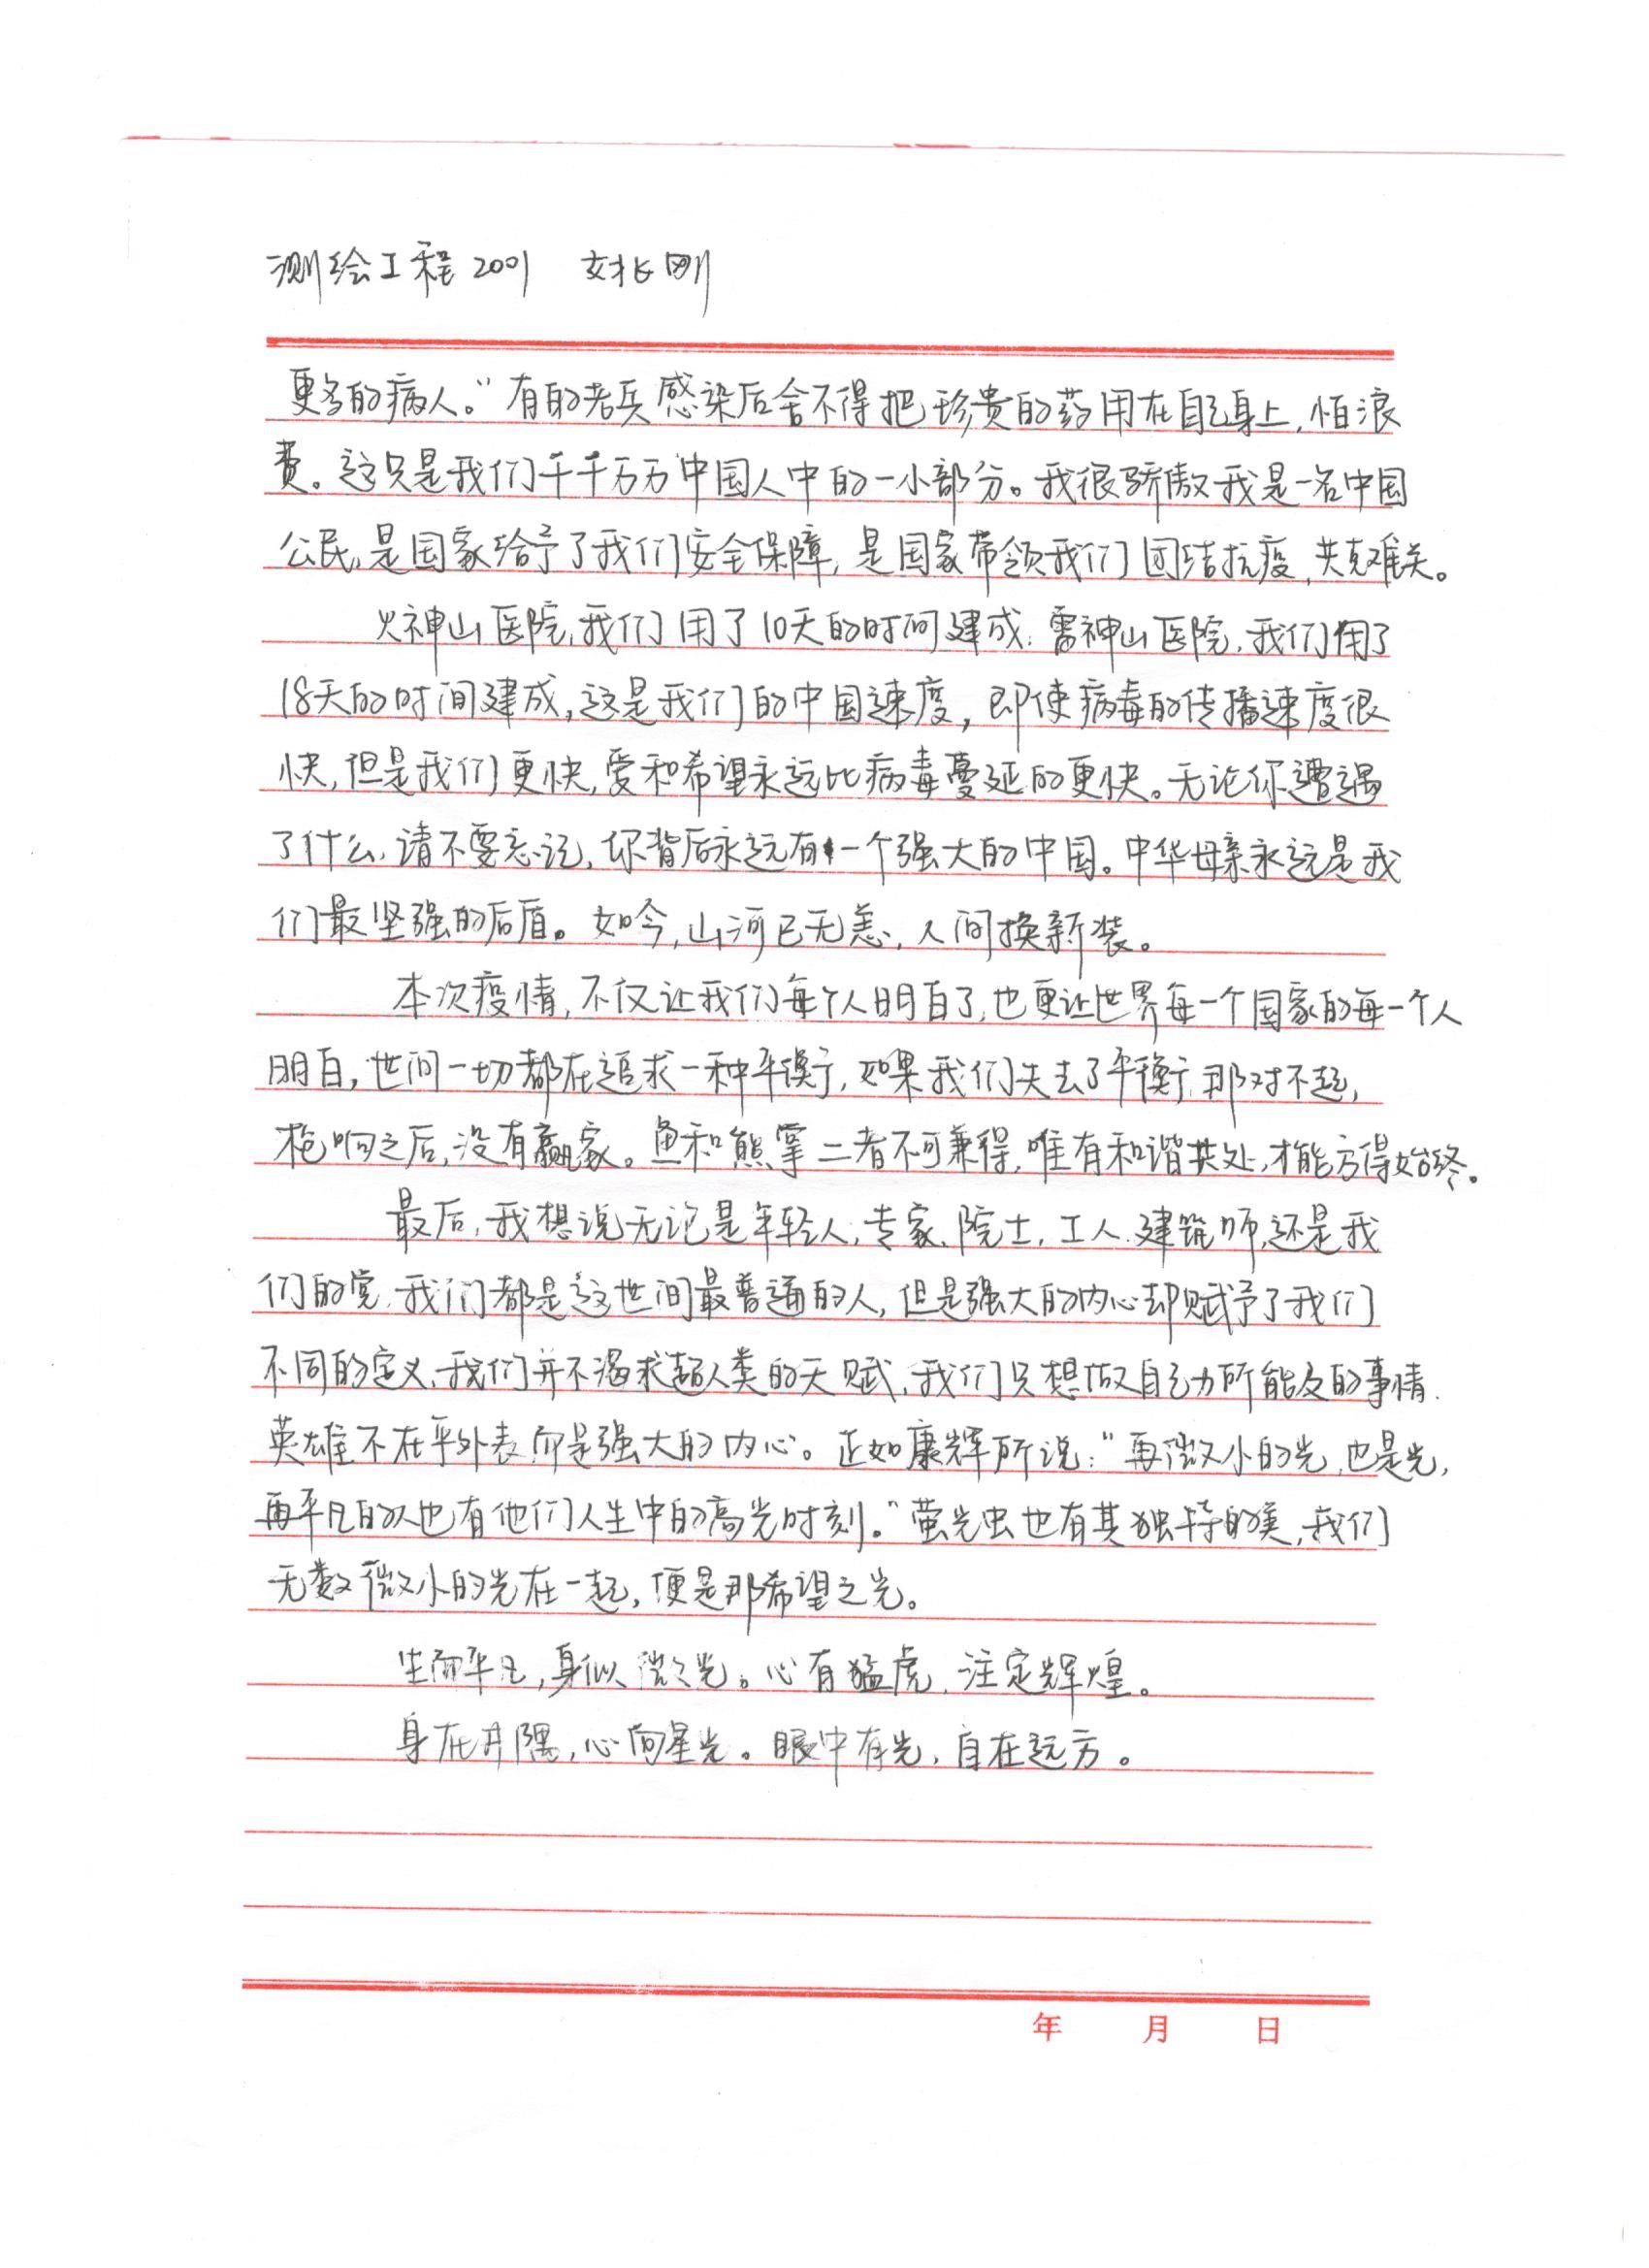 测绘工程2001 刚
更多的病人。”有的老兵感染后舍不得把珍贵的药用在自己身上,怕浪
费。这只是我们千千万万中国人中的一小部分。我很骄傲我是一名中国
公民,是国家给予了我们安全保障,是国家带领我们团结抗疫,共克难关。
火神山医院,我们用了10天的时间建成,雷神山医院,我们用了
18天的时间建成,这是我们的中国速度,即使病毒的传播速度很
快,但是我们更快,爱和希望永远比病毒蔓延的更快。无论你遭遇
了什么,请不要忘记,你背后永远有一个强大的中国。中华母亲永远是我
们最坚强的后盾。如今,山河已无恙,人间换新装。
本次疫情,不仅让我们每个人明白了,也更让世界每一个国家的每一个人
明白,世间一切都在追求一种平衡,如果我们失去了平衡,那对不起,
枪响之后,没有赢家。鱼和熊掌二者不可兼得,唯有和谐共处,才能方得始终。
最后,我想说无论是年轻人,专家,院士,工人,建筑师,还是我
们的党,我们都是这世间最普通的人,但是强大的内心却赋予了我们
不同的定义,我们并不渴求超人类的天赋,我们只想做自己力所能及的事情.
英雄不在乎外表而是强大的内心。正如康辉所说:“再微小的光,也是光,
再平凡的人也有他们人生中的高光时刻。”萤光虫也有其独特的美,我们
无数微小的光在一起,便是那希望之光。
生而平凡,身似微光。心有猛虎,注定辉煌。
身在井隅,心向星光。眼中有光,自在远方。
年 月 日